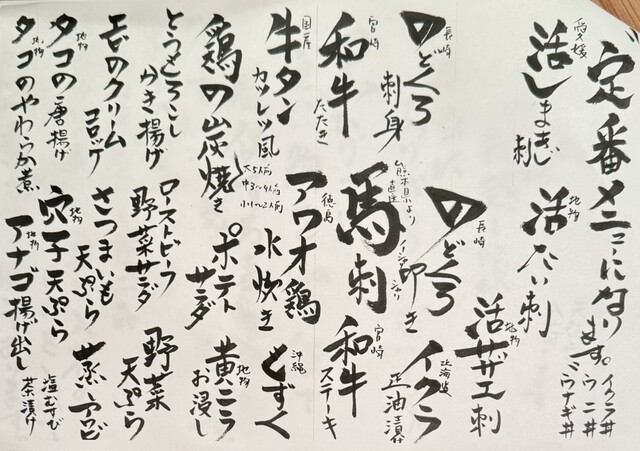 定番メニューになります。
イクラ丼
ウニ丼
ミウナギ丼
愛媛
活しまあじ刺
地物
活たい刺
地物
活サザエ刺
長崎
のどくろ刺身
長崎
のどくろ叩き
北海道
イクラ正油漬
宮崎
和牛たたき
熊本県より直送
馬刺
宮崎
和牛ステーキ
国産
牛タンカツレツ風
徳島
アワオ鶏水炊き
沖縄
もずく
鶏の炭焼き
大5人前
中3〜4人前
小1〜2人前
ポテトサラダ
地物
黄ニラお浸し
とうもろこしかき揚げ
ローストビーフ野菜サラダ
野菜天ぷら
エビのクリームコロッケ
さつまいも天ぷら
蒸エビ
地物
タコの唐揚げ
地物
穴子天ぷら
塩むすび
茶漬け
地物
タコのやわらか煮
地物
アナゴ揚げ出し